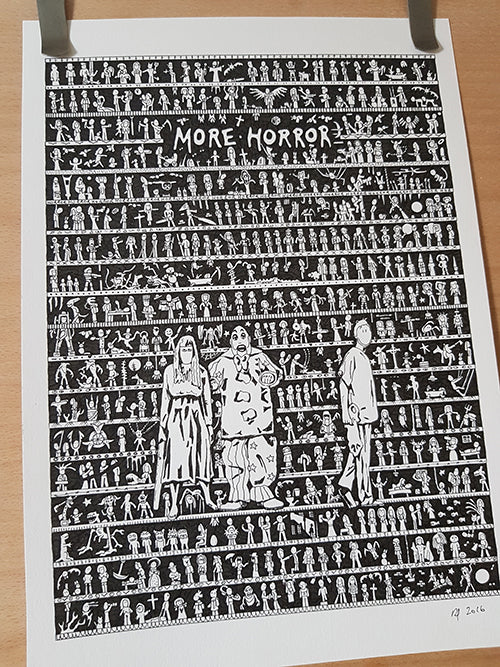 MORE HORROR
2016